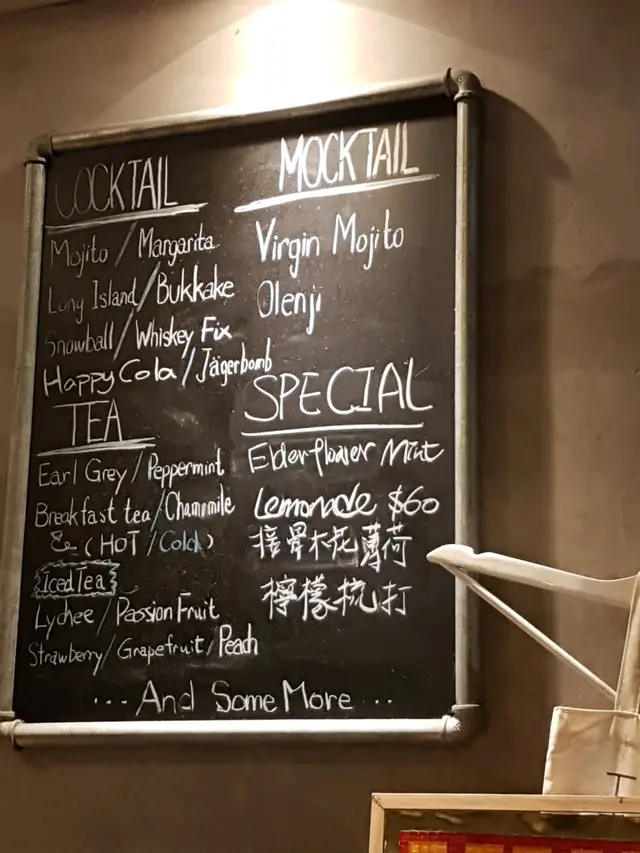 COCKTAIL
Mojito / Margarita
Long Island / Bukkake
Snowball / Whiskey Fix
Happy Cola / Jägerbomb
TEA
Earl Grey / Peppermint
Breakfast tea / Chamomile
& (HOT / Cold)
Iced Tea
Lychee / Passion Fruit
Strawberry / Grapefruit / Peach
MOCKTAIL
Virgin Mojito
Olenji
SPECIAL
Elderflower Mint
Lemonade $60
接骨木花薄荷
檸檬梳打
... And Some More ...